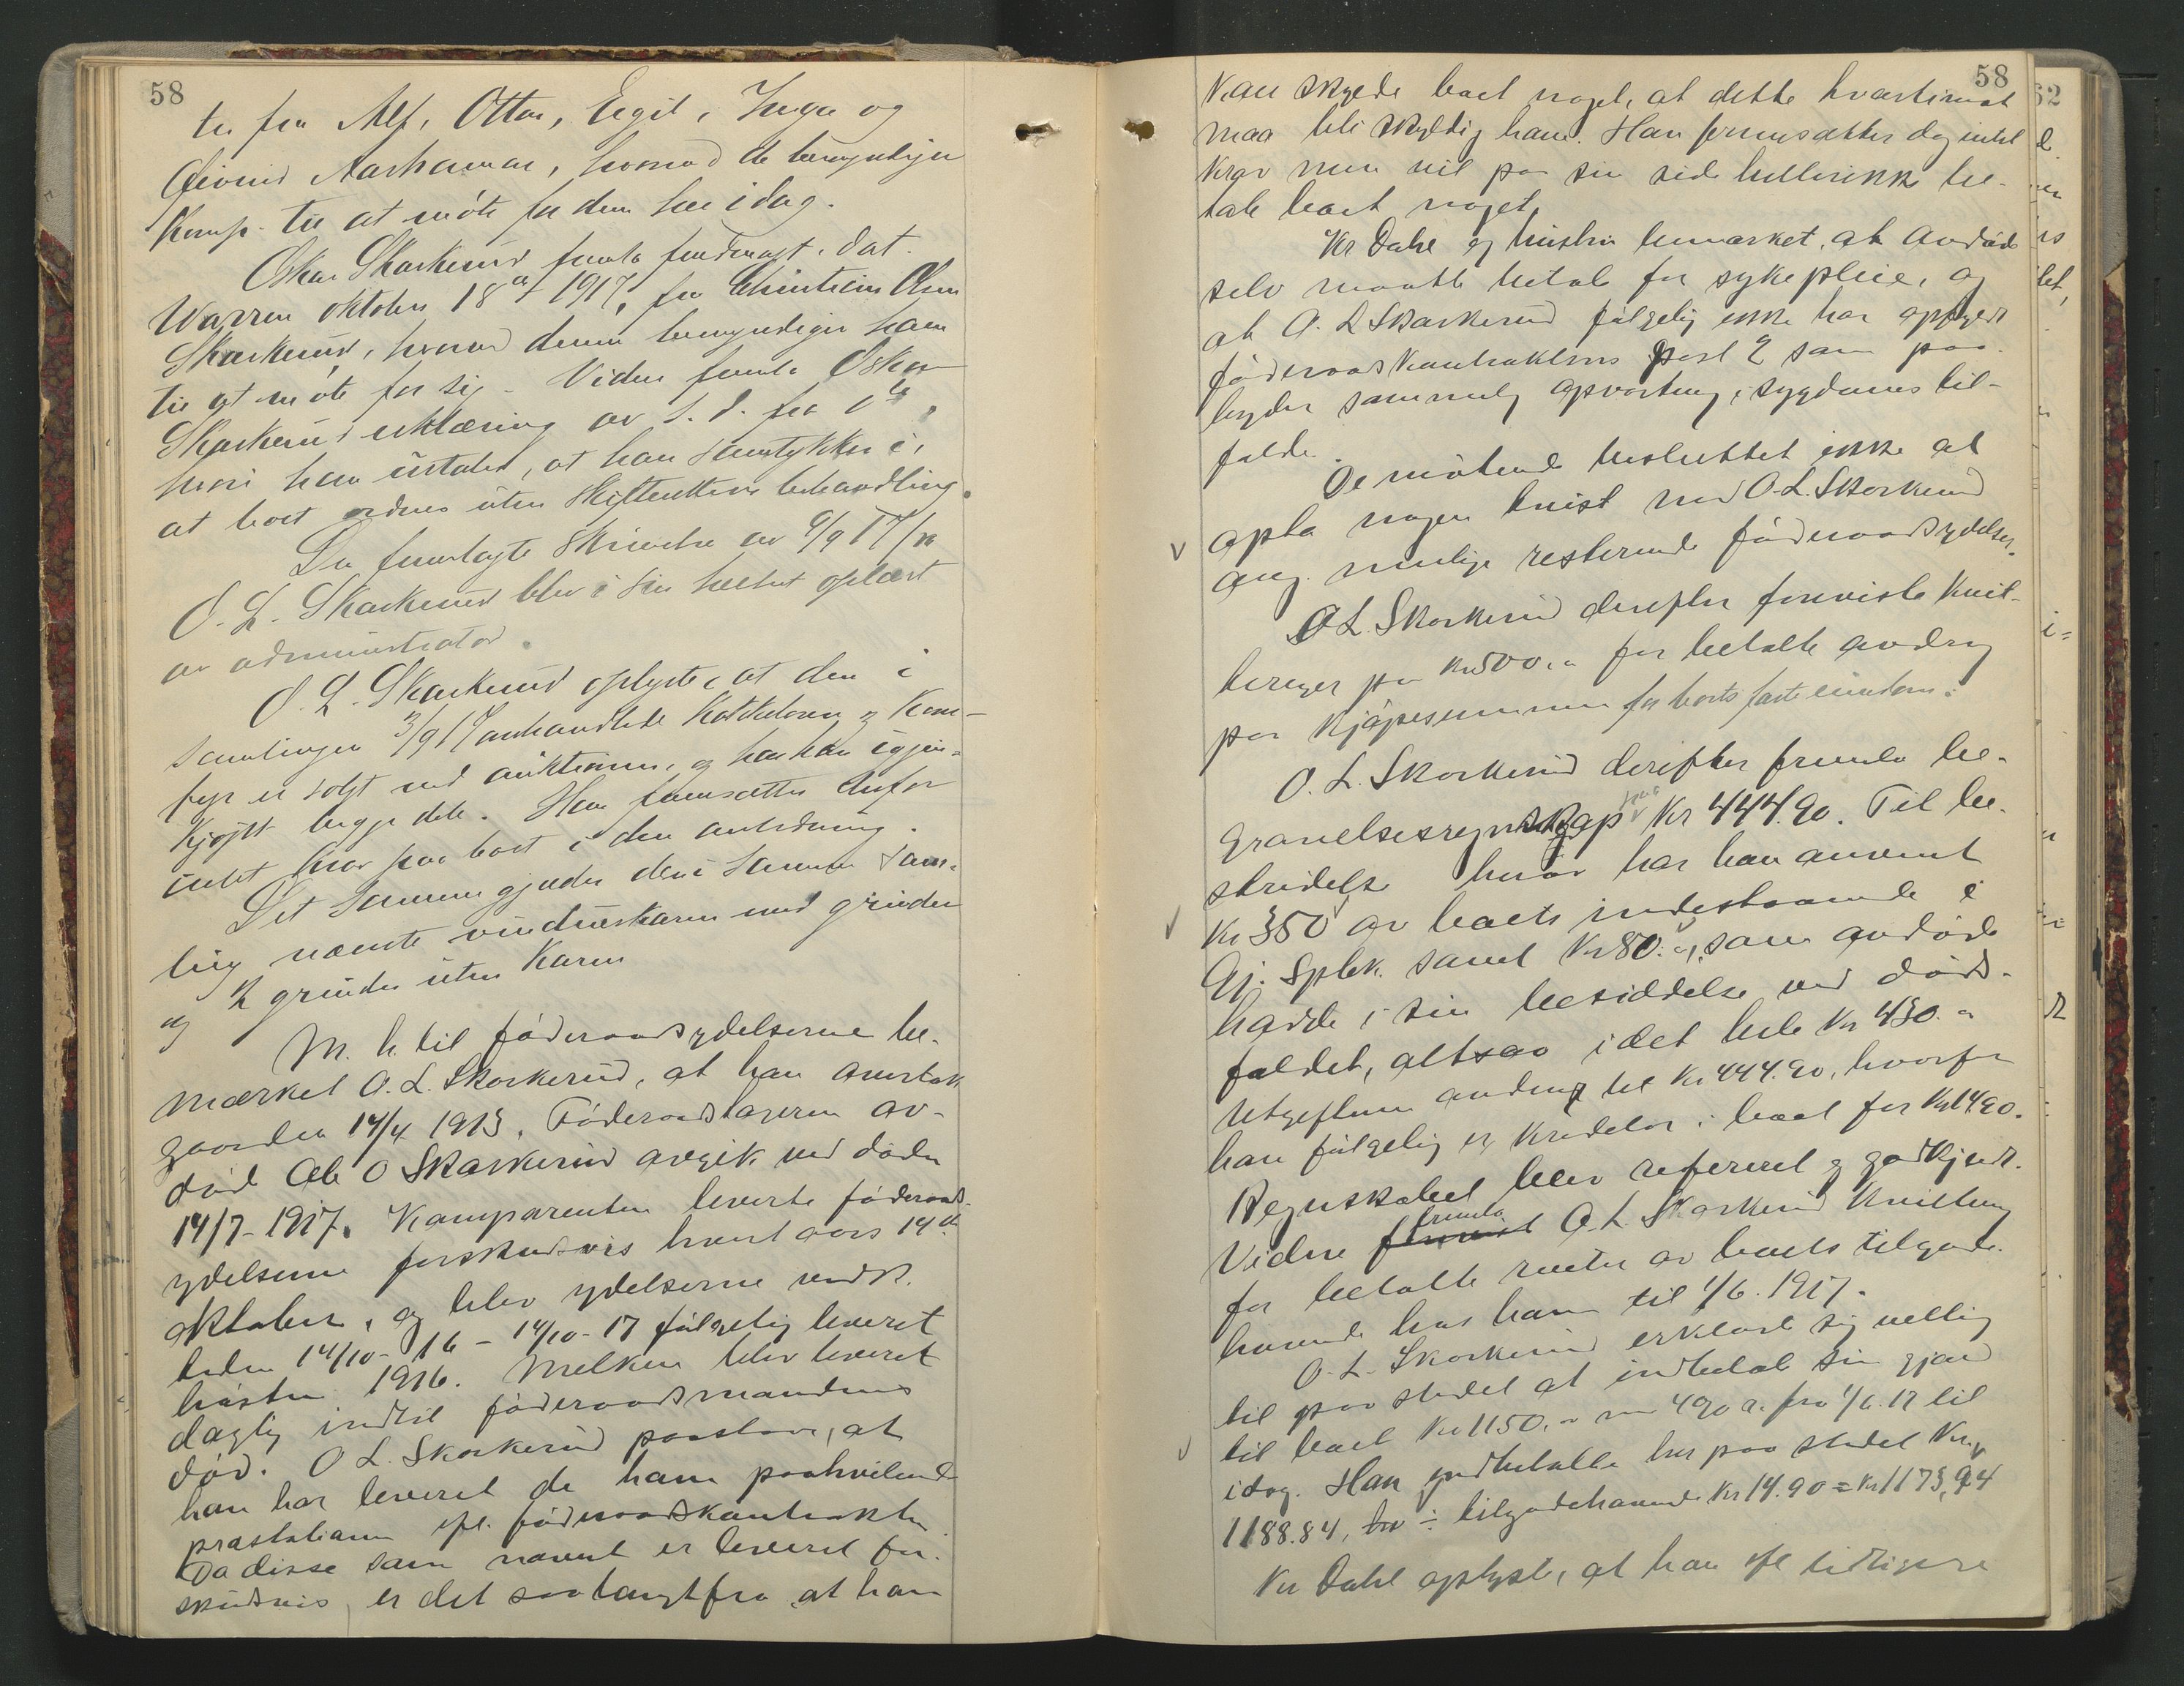 58
ter fra Alf, Ottar, Eigil, Inga og
Øivind Aashamar, hvorved de bemyndiger
Komp. til at möte for dem her idag.
Oskar Skarkerud fremla fuldmagt, dat.
Warren oktober 18de 1917, fra Christian Olsen
Skarkerud, hvorved denne bemyndiger ham
til at möte for sig. Videre fremla Oskar
Skarkerud erklæring av s. d. fra
hvori han uttaler, at han samtykker i,
at boet ordnes uten skifterettens behandling.
Den fremlagte skrivelse av 6/9 17 fra
O. L. Skarkerud blev i sin helhet oplæst
av administrator.
O. L. Skarkerud oplyste, at den i
samlingen 3/9 17 omhandlede Kakkelovn og Kom-
fyr er solgt ved auktionen, og har han igjen-
kjøpt begge dele. Han fremsætter derfor
intet krav paa boet i den anledning.
Det samme gjælder den i samme sam-
ling nævnte vindueskarm med grinder
og 2 grinder uten karm
M. h. til föderaadsydelserne be-
mærket O. L. Skarkerud, at han overtok
gaarden 14/4 1913. Föderaadstageren av-
död Ole O Skarkerud avgik ved döden
14/7-1917. Komparenten leverte föderaads-
ydelserne forskudsvis hvert aars 14de
oktober, og blev ydelserne vedk.
tiden 14/10-16 - 14/10-17 fölgelig leveret
hösten 1916. Melken blev leveret
daglig indtil föderaadsmandens
död. O L. Skarkerud paastaar, at
han har leveret de ham paahvilende
præstationer efl. föderaadskontrakten.
Da disse som nævnt er leveret for-
skudsvis, er det saa langt fra at han
58
kan skylde boet noget, at dette hvertimot
maa bli skyldig ham. Han fremsætter dog intet
krav men vil paa sin side hellerikke be-
tale boet noget.
Kr Dahl og hustru bemærket, at avdöde
selv maatte betale for sykepleie, og
at O. L Skarkerud fölgelig ikke har opfyldt
föderaadskontraktens post 2 som paa-
byder sømmelig opvartning i sygdomstil-
fælde.
De mötende besluttet ikke at
opta nogen tvist med O. L. Skarkerud
ang. mulige resterende föderaadsydelser.
O L. Skarkerud derefter foreviste kvit-
teringer paa kr 500.- for betalte avdrag
paa kjöpesummen for boets faste eiendom.
O. L. Skarkerud derefter fremla be-
gravelsesregnskap kr 444.90. Til be-
stridelse herav har han anvendt
kr 350 av boets indestaaende i
Gj. Spbk. samt kr 80.-, som avdöde
hadde i sin besiddelse ved döds-
faldet, altsaa i det hele kr 430.-
Utgifterne androg til kr 444.90, hvorfor
han fölgelig er kreditor i boet for kr 14.90.
Regnskabet blev refereret og godkjendt.
Videre fremla O. L. Skarkerud kvittering
for betalte renter av boets tilgode-
havende hos ham til 1/6. 1917.
O. L. Skarkerud erklærte sig villig
til paa stedet at indbetale sin gjæld
til boet kr 1150.- m 4% r. fra 1/6. 17 til
idag. Han indbetalte her paa stedet kr.
1188.84, ÷ tilgodehavende kr 14.90 = kr 1173,94
Kr Dahl oplyste, at han efl tidligere
62